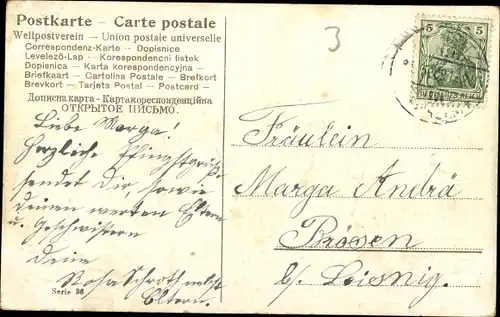 Postkarte - Carte postale
Weltpostverein — Union postale universelle
Correspondenz-Karte — Dopisnice
Levelező-Lap — Korespondencni listek
Dopisnica — Karta korespondencyjna —
Briefkaart — Cartolina Postale — Brefkort
Brevkort — Tarjeta Postal — Postcard —
Дописна карта - Карткореспонденційна
ОТКРЫТОЕ ПИСЬМО.
3
5 5
DEUTSCHES REICH
Liebe Marga!
Herzliche Pfingstgrüße
sendet Dir, sowie
deinen werten Eltern
u. Geschwistern
deine
Rosa Schroth nebst
Eltern.
Serie 26
Fräulein
Marga Andrä
Brösen
b/. Leisnig.